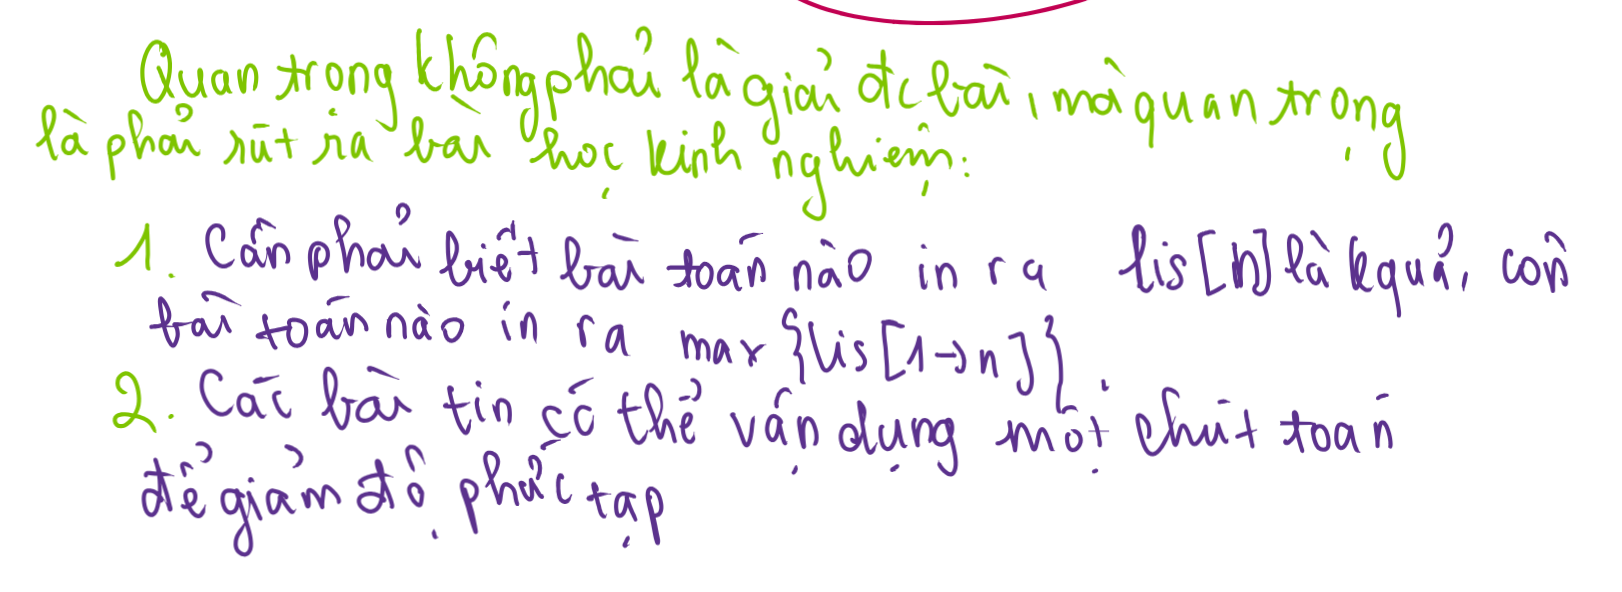 Quan trọng không phải là giải đc bài, mà quan trọng
là phải rút ra bài học kinh nghiệm:
1. Cần phải biết bài toán nào in ra lis[n] là kquả, còn
bài toán nào in ra max{lis[1→n]}.
2. Các bài tin có thể vận dụng một chút toán
để giảm độ phức tạp